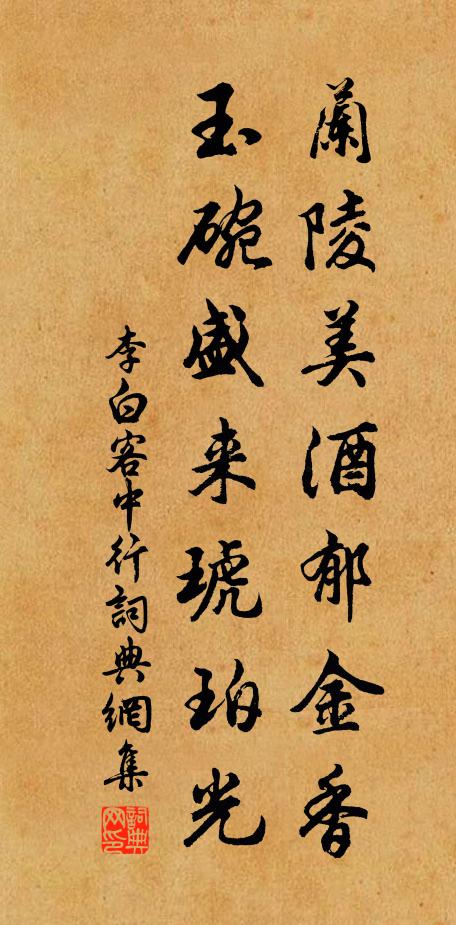 蘭陵美酒郁金香
玉碗盛来琥珀光
李白客中行詞典網集
詞典网印